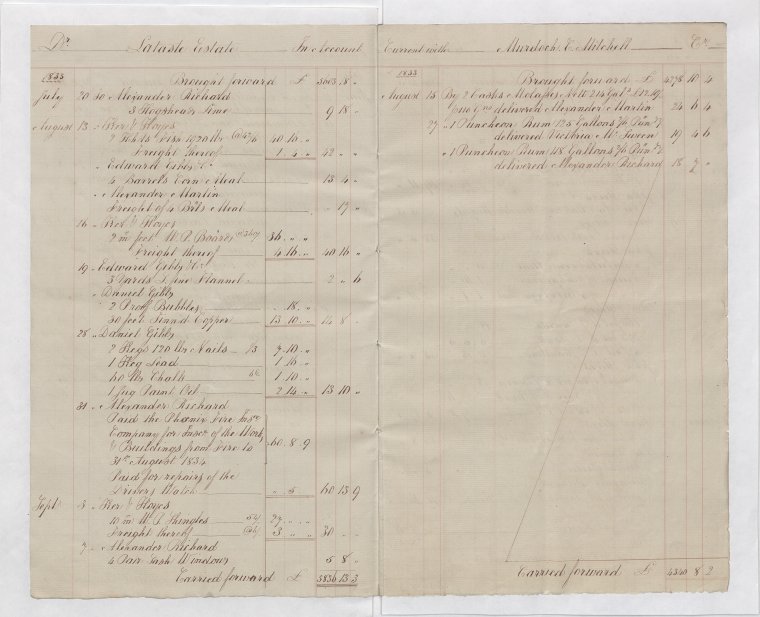 Dr. Lataste Estate In Account
1833
Brought forward £ 3603 18 "
July 20 To Alexander Richard
3 Hogsheads Lime 9 18 "
August 13 " Ker & Hoyes
40 10 "
Freight thereof 1 4 " 42 " "
" Edward Gibbs &Co
4 Barrels Corn Meal 13 4 "
" Alexander Martin
Freight of 4 Brls Meal " 17 "
16 " Ker & Hoyes
2 m feet W. P. Boards 36 " "
Freight thereof 4 16 " 40 16 "
19 " Edward Gibbs &Co
3 Yards Fine Flannel 2 " 6
" Daniel Gibbs
2 Proof Bubbles " 18 "
30 feet Tinn'd Copper 13 10 " 14 8 "
28 " Daniel Gibbs
2 Kegs 120 lbs Nails 7 10 "
1 Keg Lead 1 16 "
60 lbs Chalk 1 10 "
1 Jug Paint Oil 2 14 " 13 10 "
31 " Alexander Richard
Paid the Phœnix Fire Insce
Company for Insce of the Works
& Buildings from Fire to
31st August 1834 60 8 9
Paid for repairs of the
Drivers Watch " 5 60 13 9
Sept 3 " Ker & Hoyes
10 m W. P. Shingles 27 " "
Freight thereof 3 " " 30 " "
7 " Alexander Richard
4 Pair Sash Windows 5 8 "
Carried forward £ 3836 13 3
Current with Murdoch & Mitchell Cr
1833
Brought forward £ 4278 10 4
August 13 By 2 Casks Molasses Nett 214 Galls
delivered Alexander Martin 24 6 4
27 " 1 Puncheon Rum 123 Gallons
delivered Victoria McSween 19 4 6
" 1 Puncheon Rum 118 Gallons
delivered Alexander Richard 18 7 "
Carried forward £ 4340 8 2